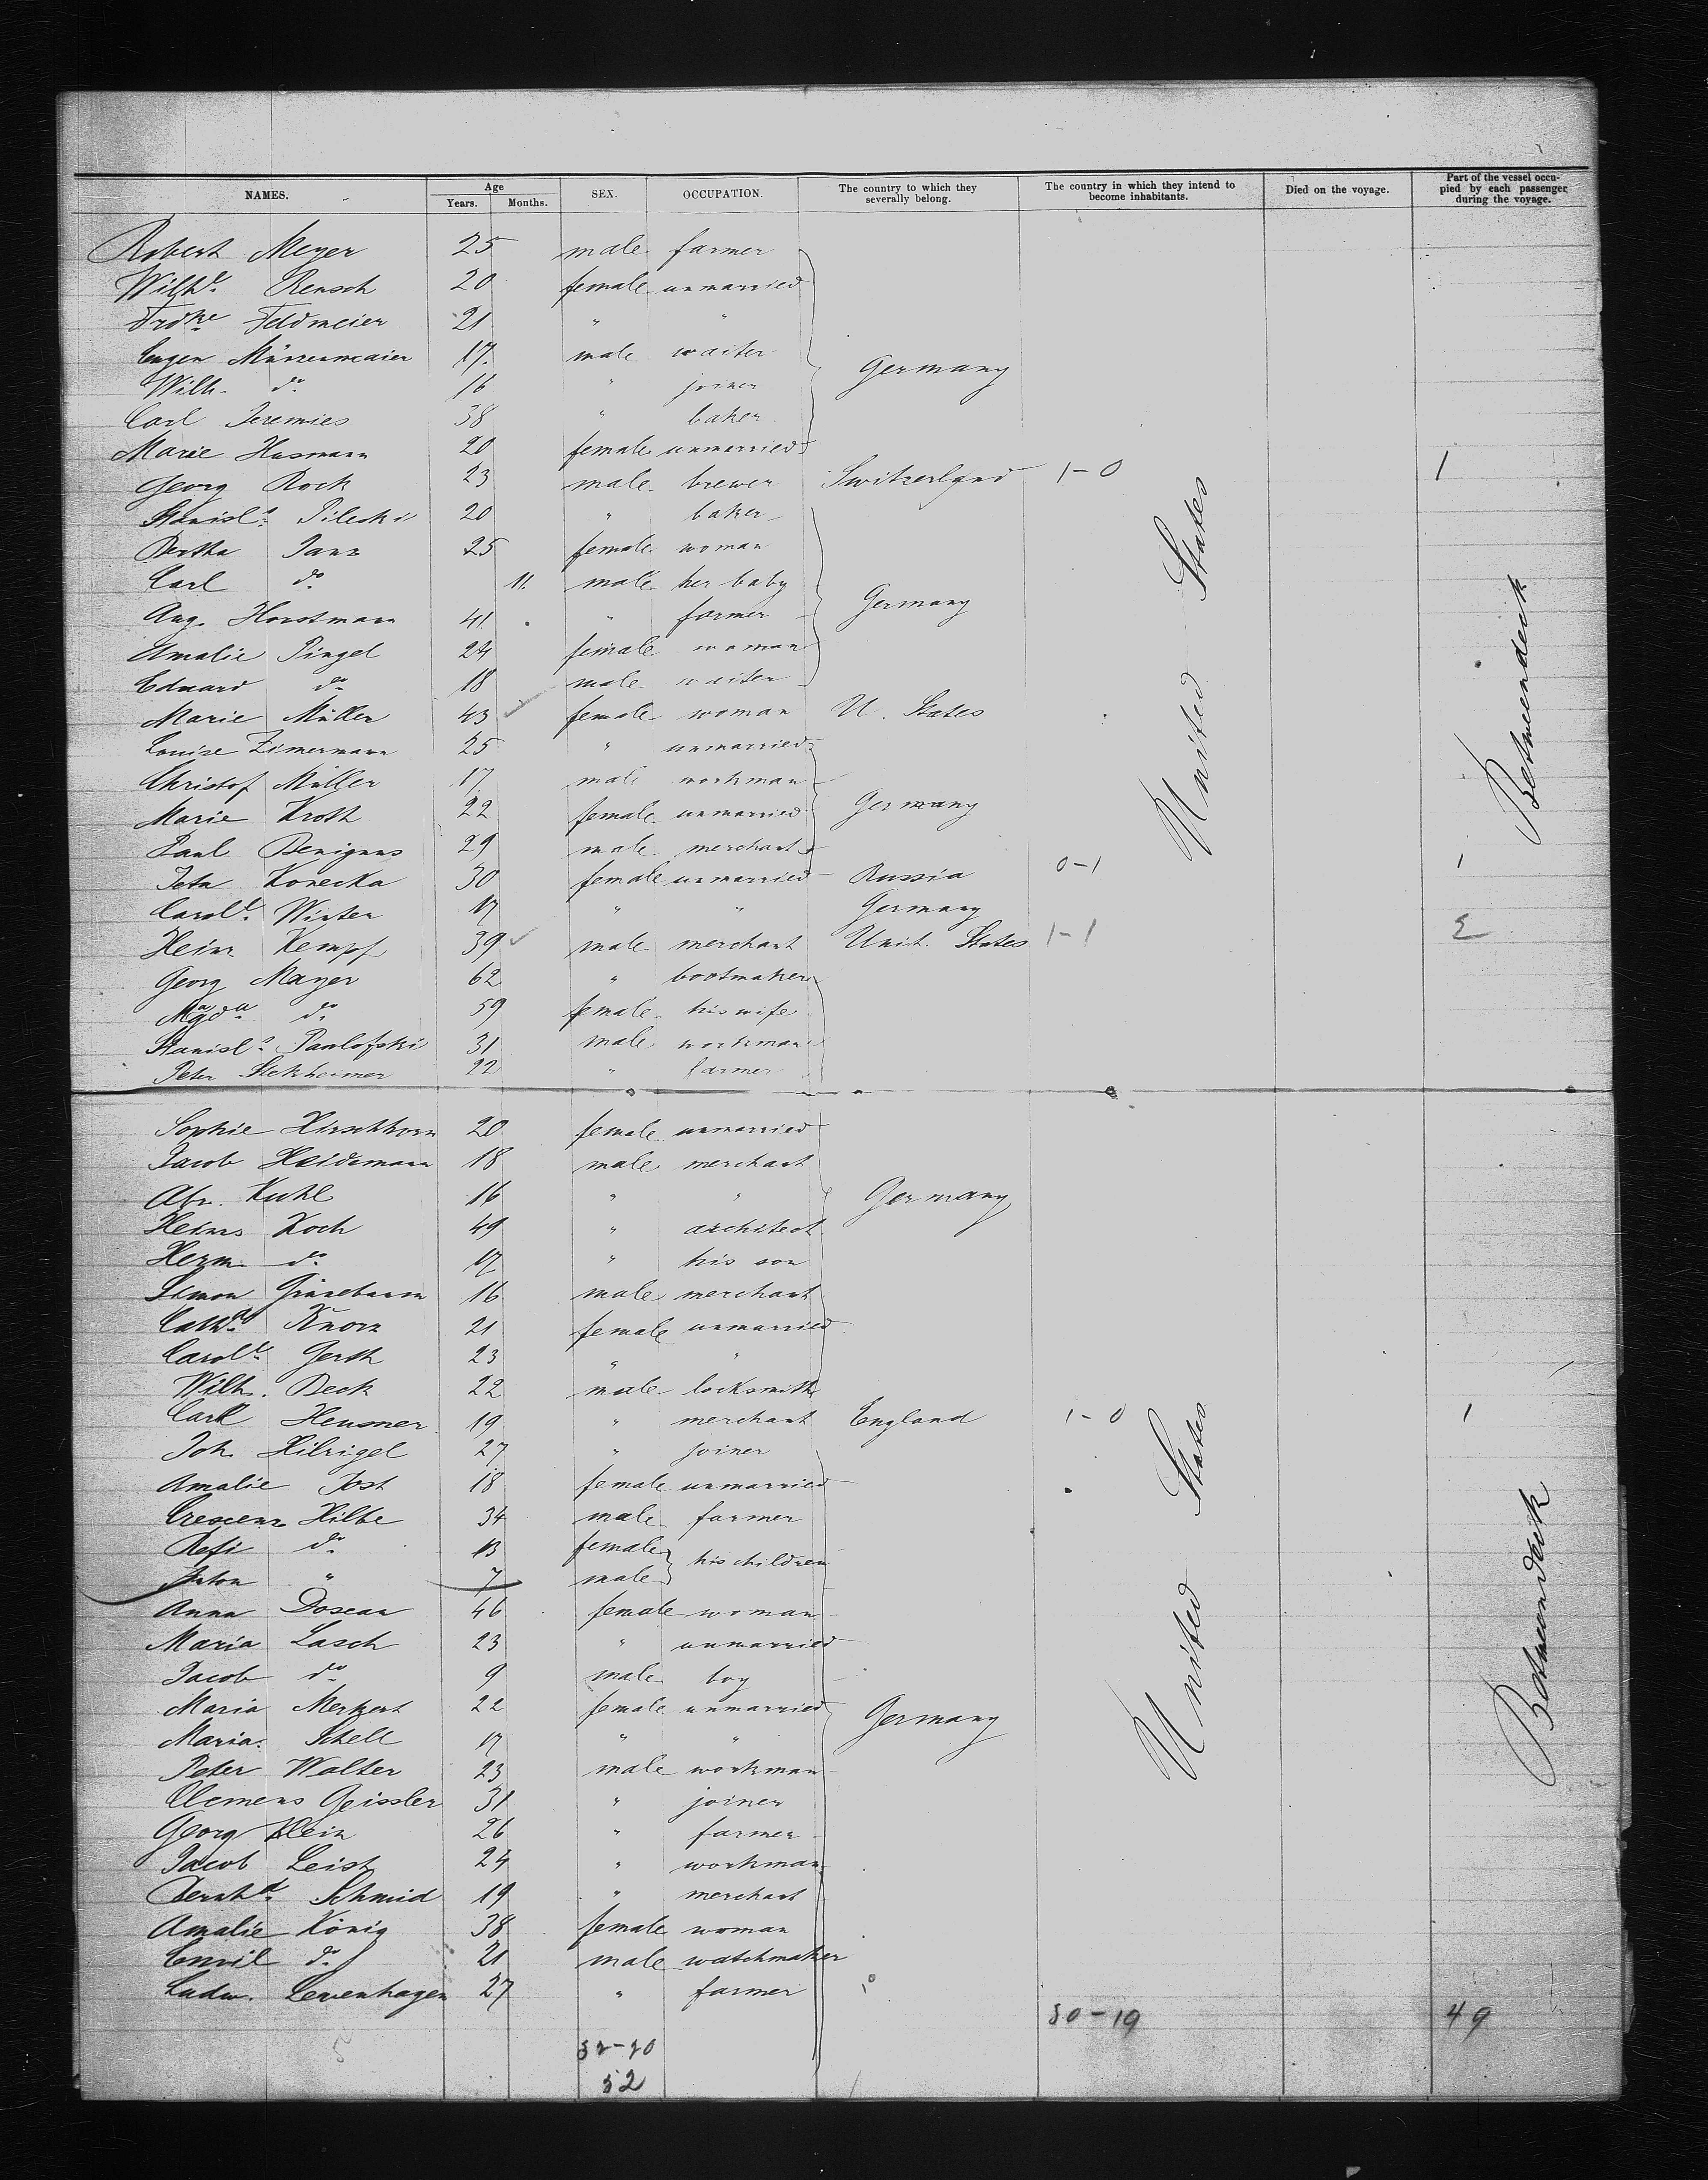 NAMES. Age Years. Months. SEX. OCCUPATION. The country to which they severally belong. The country in which they intend to become inhabitants. Died on the voyage. Part of the vessel occupied by each passenger during the voyage.
Robert Meyer 25 male farmer
Wilh.e Rensch 20 female unmarried
Frdke Feldmeier 21 " "
Eugen Münzenmaier 17 male waiter
Wilh. do 16 " joiner Germany
Carl Jeremies 38 " baker
Marie Husmann 20 female unmarried
Georg Rock 23 male brewer Switzerland 1-0 1
Stanisl.s Pileski 20 " baker
Bertha Janz 25 female woman
Carl do 11 male her baby
Aug. Horstmann 41 " farmer Germany
Amalie Pingel 24 female woman
Eduard do 18 male waiter
Marie Müller 43 female woman U. States
Louise Zimermann 25 " unmarried
Christof Müller 17 male workman
Marie Kroth 22 female unmarried Germany
Paul Benignus 29 male merchant
Jeta Konecka 30 female unmarried Russia 0-1 1
Carol.e Winter 17 " " Germany
Heinr Kempf 39 male merchant Unit. States 1-1 2
Georg Mayer 62 " bootmaker
Magda do 59 female his wife
Stanisl.s Pawlofski 31 male workman
Peter 22 " farmer
United States
Betweendeck
Sophie Hirschhorn 20 female unmarried
Jacob Heidemann 18 male merchant
Abr. Kuhl 16 " " Germany
Heinr Koch 49 " architect
Herm. do 17 " his son
Simon Grünebaum 16 male merchant
Cath.a Knorr 21 female unmarried
Carol.e Gerth 23 " "
Wilh. Beck 22 male locksmith
Carl Heusner 19 " merchant England 1-0 1
Joh. Hilrigel 27 " joiner
Amalie Jost 18 female unmarried
Crescenz Hilbe 34 male farmer
Resi do 13 female his children
Anton " 7 male
Anna Dosean 46 female woman
Maria Lasch 23 " unmarried
Jacob do 9 male boy
Maria Merkert 22 female unmarried Germany
Maria Schell 17 " "
Peter Walter 23 male workman
Clemens Geissler 31 " joiner
Georg Klein 26 " farmer
Jacob Leist 24 " workman
Bernh.d Schmid 19 " merchant
Amalie König 38 female woman
Emil do 21 male watchmaker
Ludw. Levenhagen 27 " farmer
United States
Betweendeck
30-19 49
32-20
52